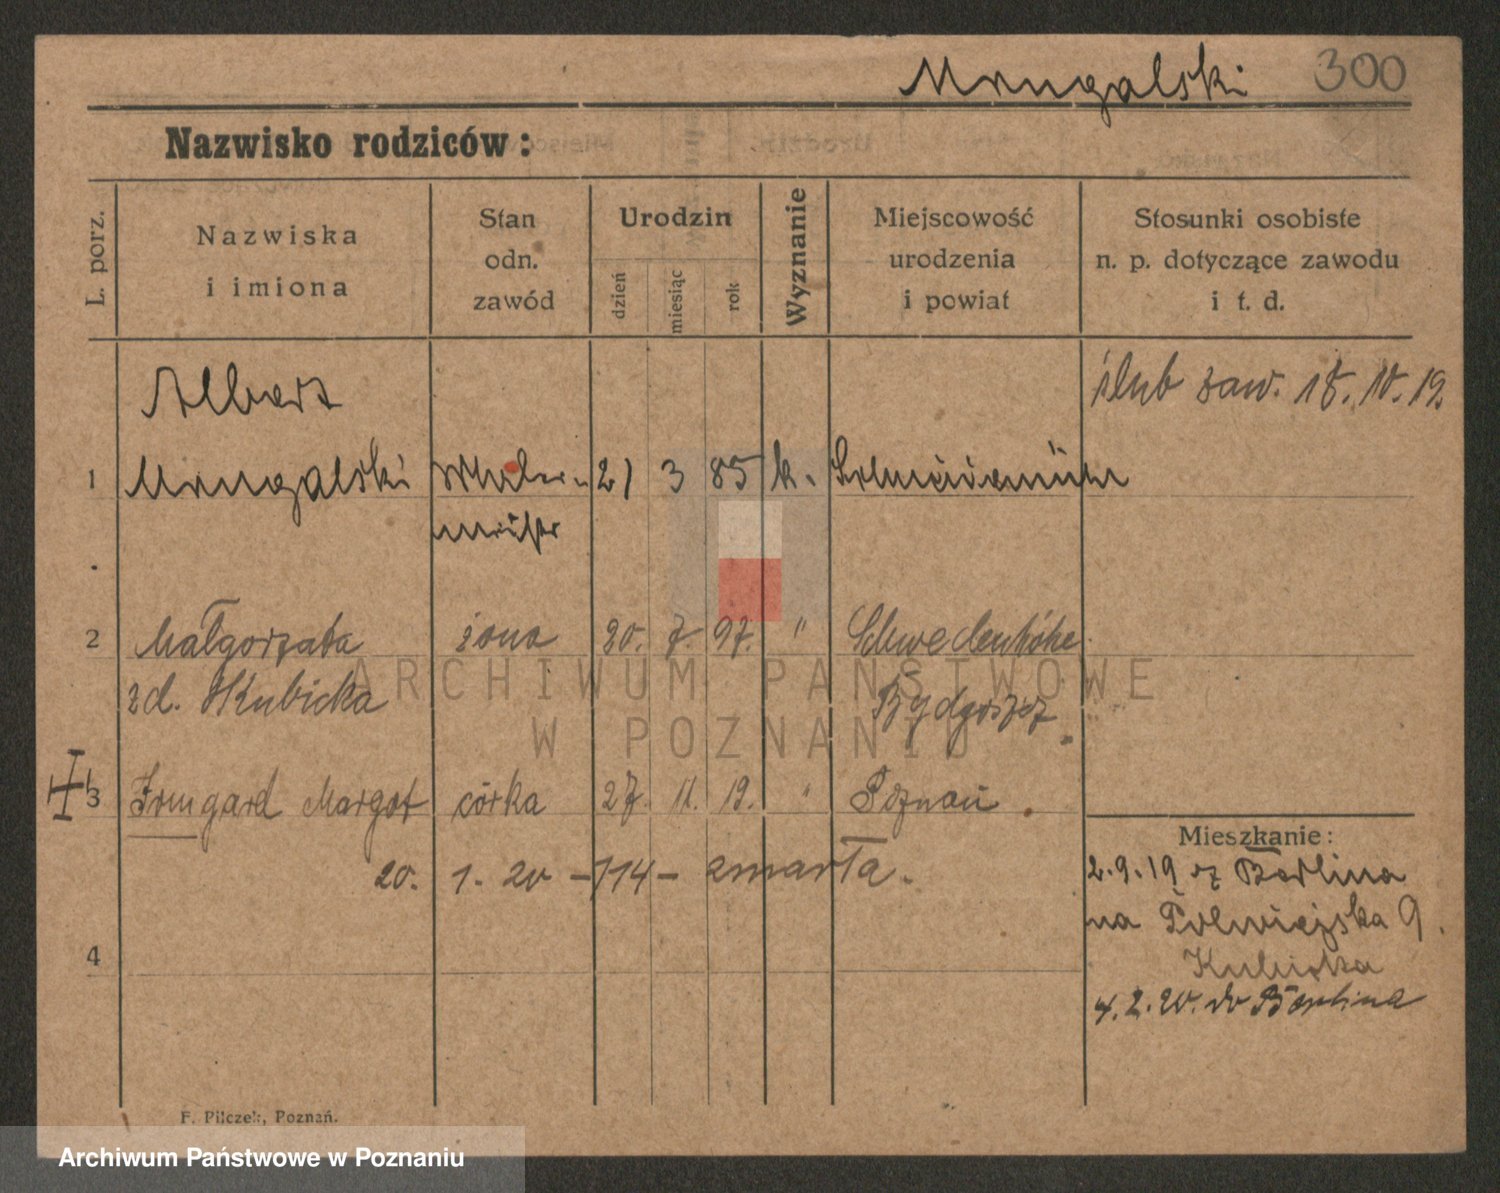 Mrugalski 300
Nazwisko rodziców:
L. porz.
Nazwiska
i imiona
Stan
odn.
zawód
Urodzin
dzień
miesiąc
rok
Wyznanie
Miejscowość
urodzenia
i powiat
Stosunki osobiste
n. p. dotyczące zawodu
i t. d.
Albert ślub zaw. 18. 10. 19.
1 Mrugalski 21 3 85 k.
2 Małgorzata żona 20. 7. 97. " Schwedenhöhe
zd. Kubicka Bydgoszcz
3 Irmgard Margot córka 27. 11. 19. " Poznań
Mieszkanie:
20. 1. 20 - 114 - zmarła.
2.9.19 z Berlina
na Półwiejska 9.
4
Kubicka
4.2.20. do Berlina
F. Pilczek, Poznań.
ARCHIWUM PAŃSTWOWE
W POZNANIU
Archiwum Państwowe w Poznaniu